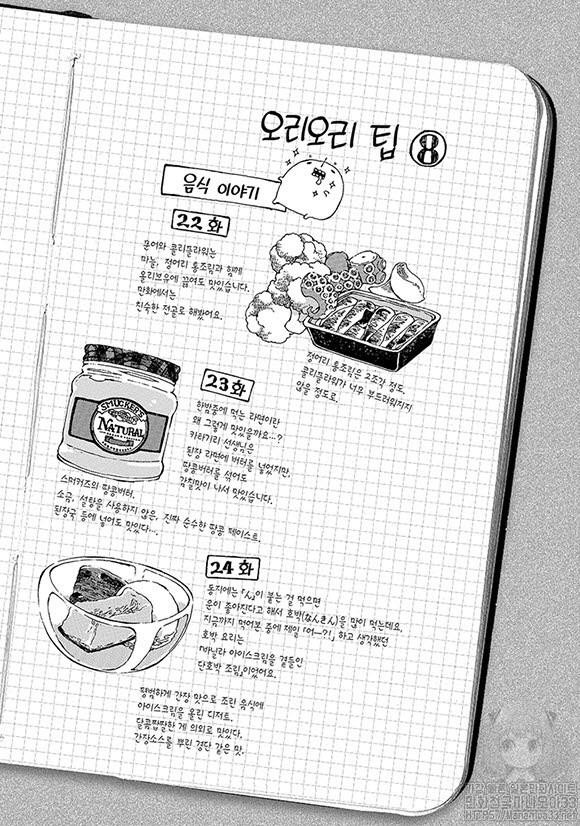 오리오리 팁 ⑧
음식 이야기
22화
문어와 콜리플라워는
마늘, 정어리 통조림과 함께
올리브유에 끓여도 맛있습니다.
만화에서는
친숙한 전골로 해봤어요.
정어리 통조림은 2조각 정도.
콜리플라워가 너무 부드러워지지
않을 정도로.
SMUCKER'S
NATURAL
23화
한밤중에 먹는 라면이란
왜 그렇게 맛있을까요...?
카타기리 선생님은
된장 라면에 버터를 넣었지만,
땅콩버터를 섞어도
감칠맛이 나서 맛있습니다.
스머커즈의 땅콩버터.
소금, 설탕을 사용하지 않은, 진짜 순수한 땅콩 페이스트.
된장국 등에 넣어도 맛있다...
24화
동지에는 「ん」이 붙는 걸 먹으면
운이 좋아진다고 해서 호박(なんきん)을 많이 먹는데요,
지금까지 먹어본 중에 제일 「어―?!」 하고 생각했던
호박 요리는
「바닐라 아이스크림을 곁들인
단호박 조림」이었어요.
평범하게 간장 맛으로 조린 음식에
아이스크림을 올린 디저트.
달콤짭짤한 게 의외로 맛있다.
간장소스를 뿌린 경단 같은 맛.
HTTPS://Manamoa33.net